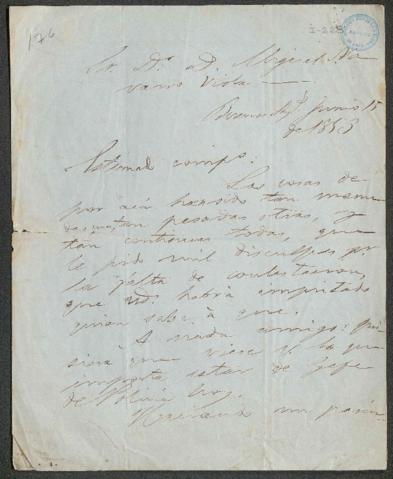 176
I-228
Sr. Dr. D. Miguel Na
varro Viola
Buenos Ay.s Junio 15
de 1853
Estimado compo:
Las cosas de
por acá han sido tan
tan pesadas otras, y
tan contrarias todas, que
le pido mil disculpas pr.
la falta de contestacion,
que Vd. habrá imputado
quien sabe à que.
A nada amigo: qui
siera que viese V. lo que
importa estar de Gefe
de Policia hoy.